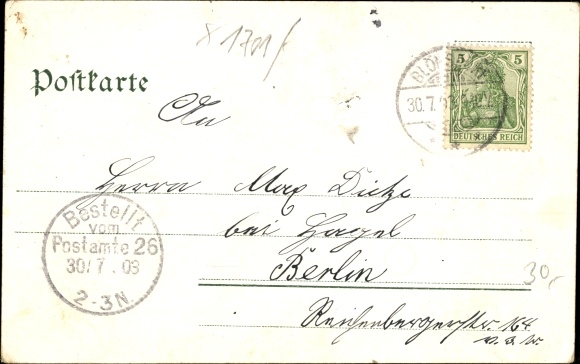 1701/
5 5
DEUTSCHES REICH
30.7.0
Postkarte
An
Herrn Max Dietze
bei Hagel
Berlin
Reichenbergerstr. 164
v. 3. Tr.
Bestellt
vom
Postamte 26
30/7.03
2-3N.
30,-